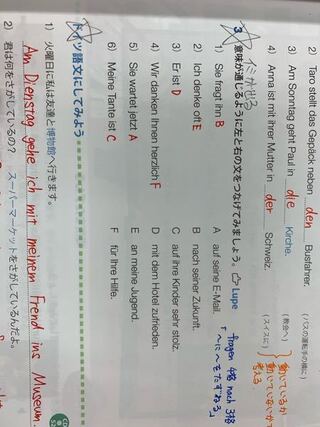 2) Taro stellt das Gepäck neben den Busfahrer. (バスの運転手の横に)
3) Am Sonntag geht Paul in die Kirche. (教会へ)
4) Anna ist mit ihrer Mutter in der Schweiz. (スイスに)
動いているか
動いていないかで
考える
つなげる
3 意味が通じるように左と右の文をつなげてみましょう。 Lupe
1) Sie fragt ihn B
2) Ich denke oft E
3) Er ist D
4) Wir danken Ihnen herzlich F
5) Sie wartet jetzt A
6) Meine Tante ist C
A auf seine E-Mail.
B nach seiner Zukunft.
C auf ihre Kinder sehr stolz.
D mit dem Hotel zufrieden.
E an meine Jugend.
F für Ihre Hilfe.
fragen 4格 nach 3格
「〜に〜をたずねる」
ドイツ語文にしてみよう
1) 火曜日に私は友達と博物館へ行きます。
Am Dienstag gehe ich mit meinem Frend ins Museum.
2) 君は何をさがしているの? スーパーマーケットをさがしているんだよ。